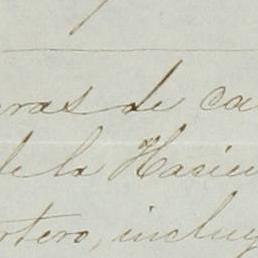 ras de ca
de la Hacien
rtero, incluy